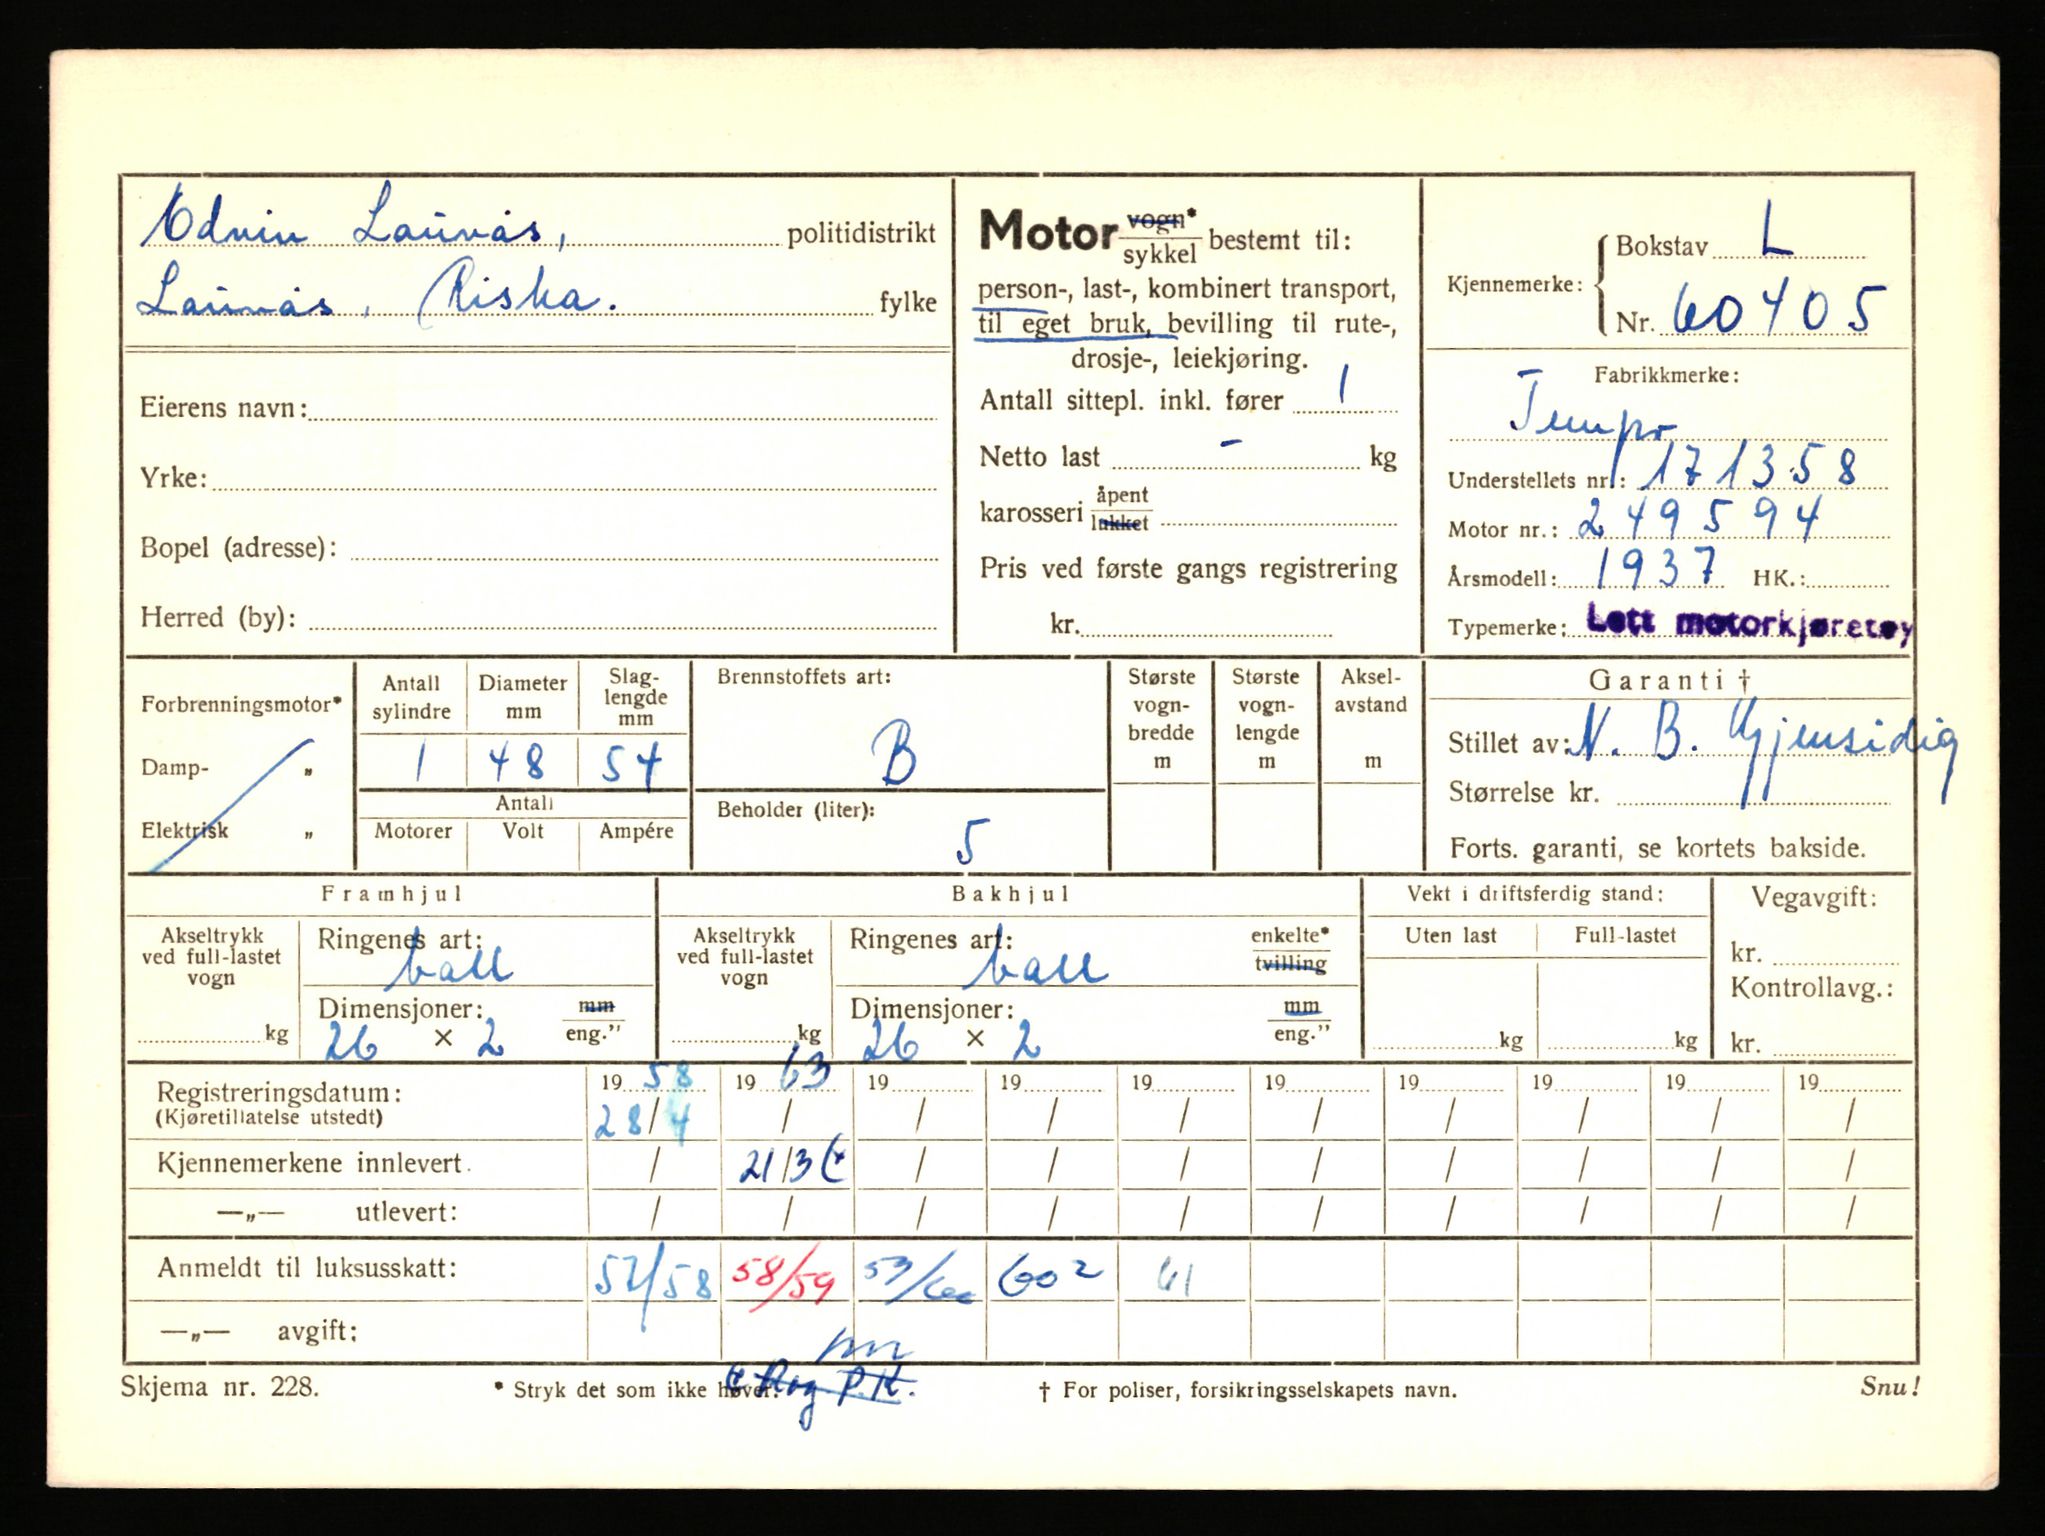 Edvin Launås, politidistrikt
Launås, Riska. fylke
Eierens navn:
Yrke:
Bopel (adresse):
Herred (by):
Motor vogn* / sykkel bestemt til:
person-, last-, kombinert transport,
til eget bruk, bevilling til rute-,
drosje-, leiekjøring.
Antall sittepl. inkl. fører 1
Netto last - kg
karosseri åpent / lukket
Pris ved første gangs registrering
kr.
Kjennemerke: Bokstav L
Nr. 60405
Fabrikkmerke:
Tempo
Understellets nr.: 171358
Motor nr.: 249594
Årsmodell: 1937 HK.:
Typemerke: Lett motorkjøretøy
Forbrenningsmotor*
Damp- „
Elektrisk „
Antall sylindre Diameter mm Slag-lengde mm
1 48 54
Antall
Motorer Volt Ampére
Brennstoffets art:
B
Beholder (liter):
5
Største vogn-bredde m
Største vogn-lengde m
Aksel-avstand m
Garanti †
Stillet av: N. B. Gjensidig
Størrelse kr.
Forts. garanti, se kortets bakside.
Framhjul
Akseltrykk ved full-lastet vogn
kg
Ringenes art:
ball
Dimensjoner: mm / eng."
26 × 2
Bakhjul
Akseltrykk ved full-lastet vogn
kg
Ringenes art: enkelte* / tvilling
ball
Dimensjoner: mm / eng."
26 × 2
Vekt i driftsferdig stand:
Uten last Full-lastet
kg kg
Vegavgift:
kr.
Kontrollavg.:
kr.
Registreringsdatum: 19 58 19 63 19 19 19 19 19 19 19 19
(Kjøretillatelse utstedt) 28/4 / / / / / / / / /
Kjennemerkene innlevert. / 21/3 / / / / / / / /
—„— utlevert: / / / / / / / / / /
Anmeldt til luksusskatt: 57/58 58/59 60 2 61
—„— avgift:
Rog P.K.
Skjema nr. 228. * Stryk det som ikke høver. † For poliser, forsikringsselskapets navn. Snu!